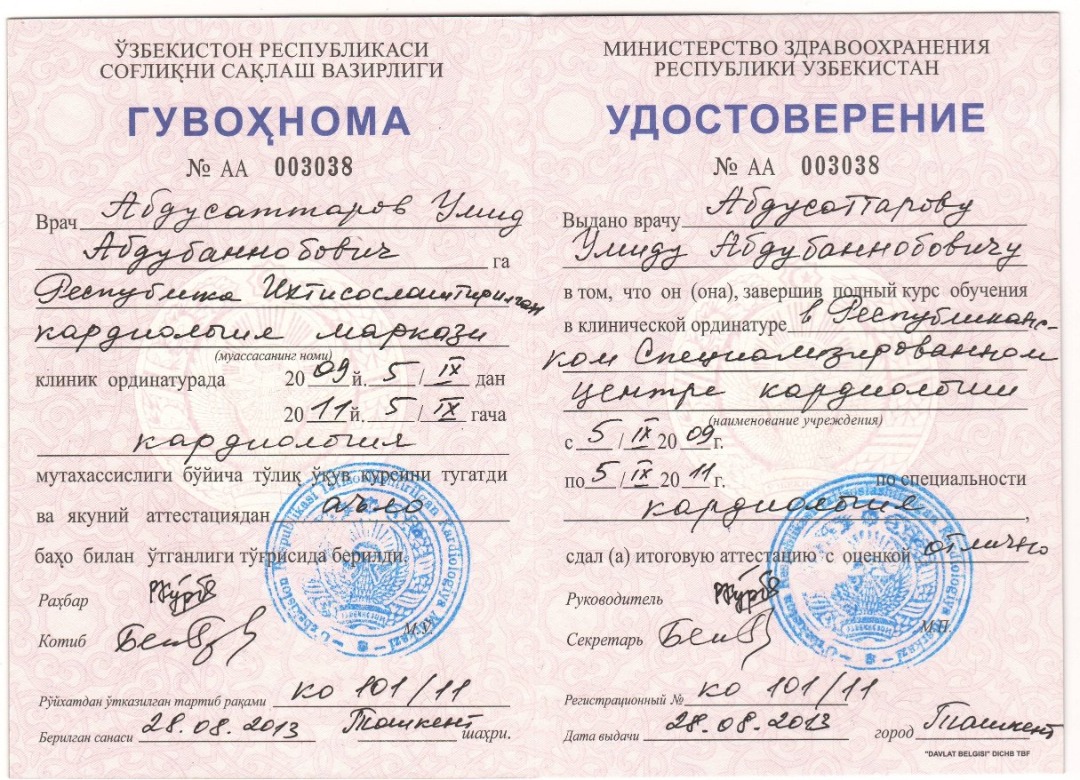 ЎЗБЕКИСТОН РЕСПУБЛИКАСИ
СОҒЛИҚНИ САҚЛАШ ВАЗИРЛИГИ
ГУВОҲНОМА
№ АА 003038
Врач Абдусаттаров Умид
Абдубаннобович га
Республика Ихтисослаштирилган
кардиология маркази
(муассасанинг номи)
клиник ординатурада 2009 й. 5 / IX дан
2011 й. 5 / IX гача
кардиология
мутахассислиги бўйича тўлиқ ўқув курсини тугатди
ва якуний аттестациядан аъло
баҳо билан ўтганлиги тўғрисида берилди.
Раҳбар
Котиб
М.Ў.
Рўйхатдан ўтказилган тартиб рақами КО 101/11
Берилган санаси 28.08.2013 Ташкент шаҳри.
МИНИСТЕРСТВО ЗДРАВООХРАНЕНИЯ
РЕСПУБЛИКИ УЗБЕКИСТАН
УДОСТОВЕРЕНИЕ
№ АА 003038
Выдано врачу Абдусаттарову
Умиду Абдубаннобовичу
в том, что он (она), завершив полный курс обучения
в клинической ординатуре в Республиканс-
ком Специализированном
центре кардиологии
(наименование учреждения)
с 5 / IX 2009 г.
по 5 / IX 2011 г. по специальности
кардиология,
сдал (а) итоговую аттестацию с оценкой отлично
Руководитель
Секретарь
М.П.
Регистрационный № КО 101/11
Дата выдачи 28.08.2013 город Ташкент
"DAVLAT BELGISI" DICHB TBF